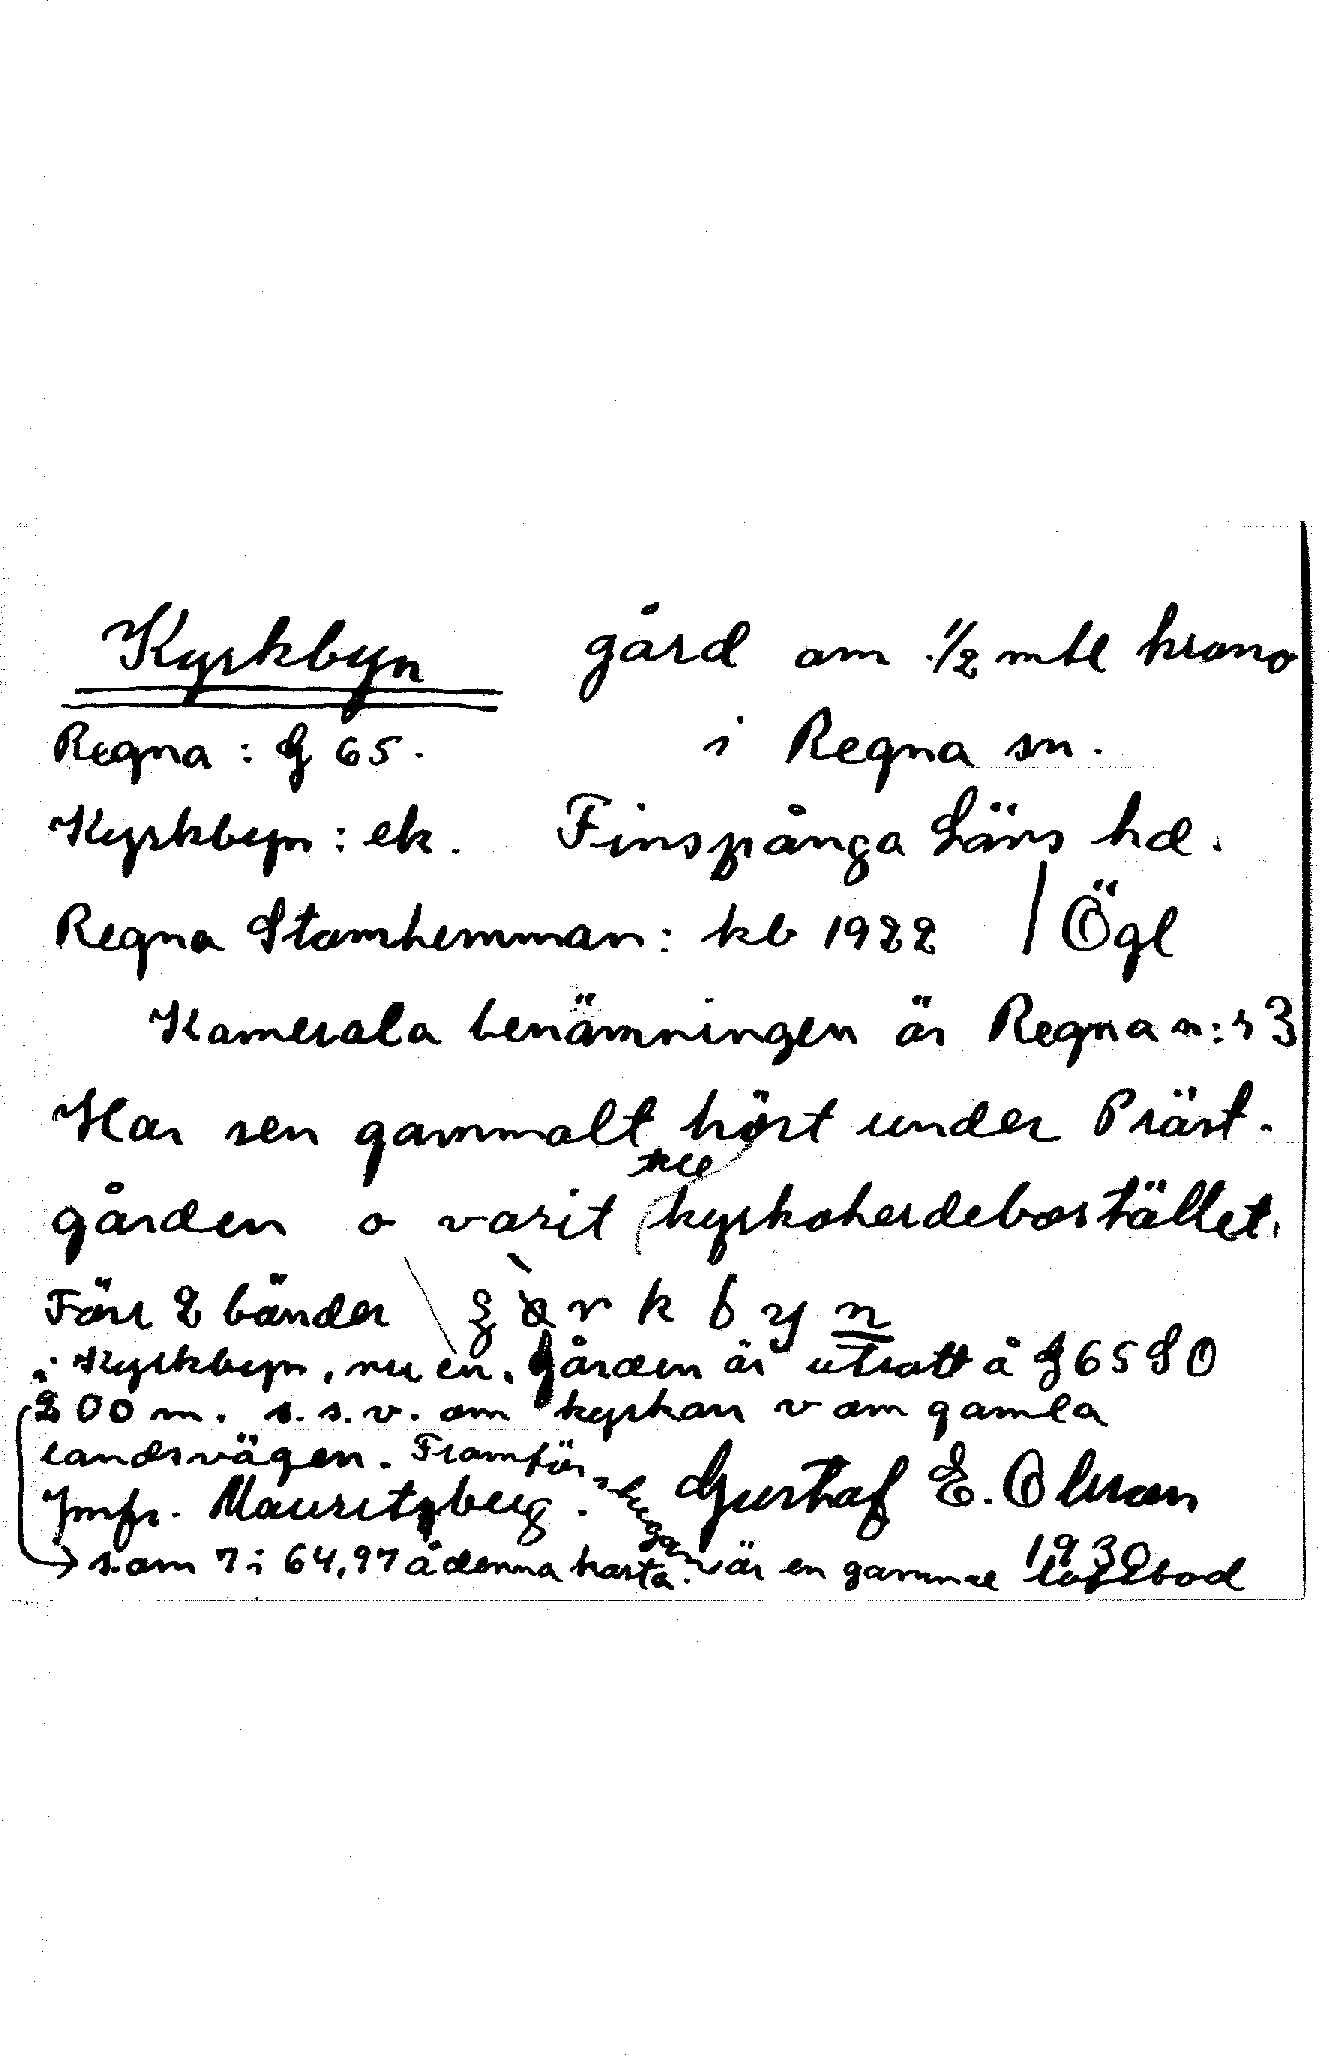 Kyrkbyn gård om 1/2 mtl krono
Regna : G 65. i Regna sn.
Kyrkbyn : ek. Finspånga Läns hd.
Regna Stomhemman : kb 1922 / Ögl
Kamerala benämningen är Regna n:r 3
Har sen gammalt hört under Präst-
till
gården o varit kyrkoherdebostället.
Förr 2 bönder
i Kyrkbyn, nu en. Gården är utsatt å G 65 S O
200 m. s.s.v. om kyrkan v om gamla
landsvägen. Framför stugan
Jmfr. Mauritzberg. Gustaf E. Olsson
1930
som 7 i 64,97 å denna karta. är en gammal loftbod